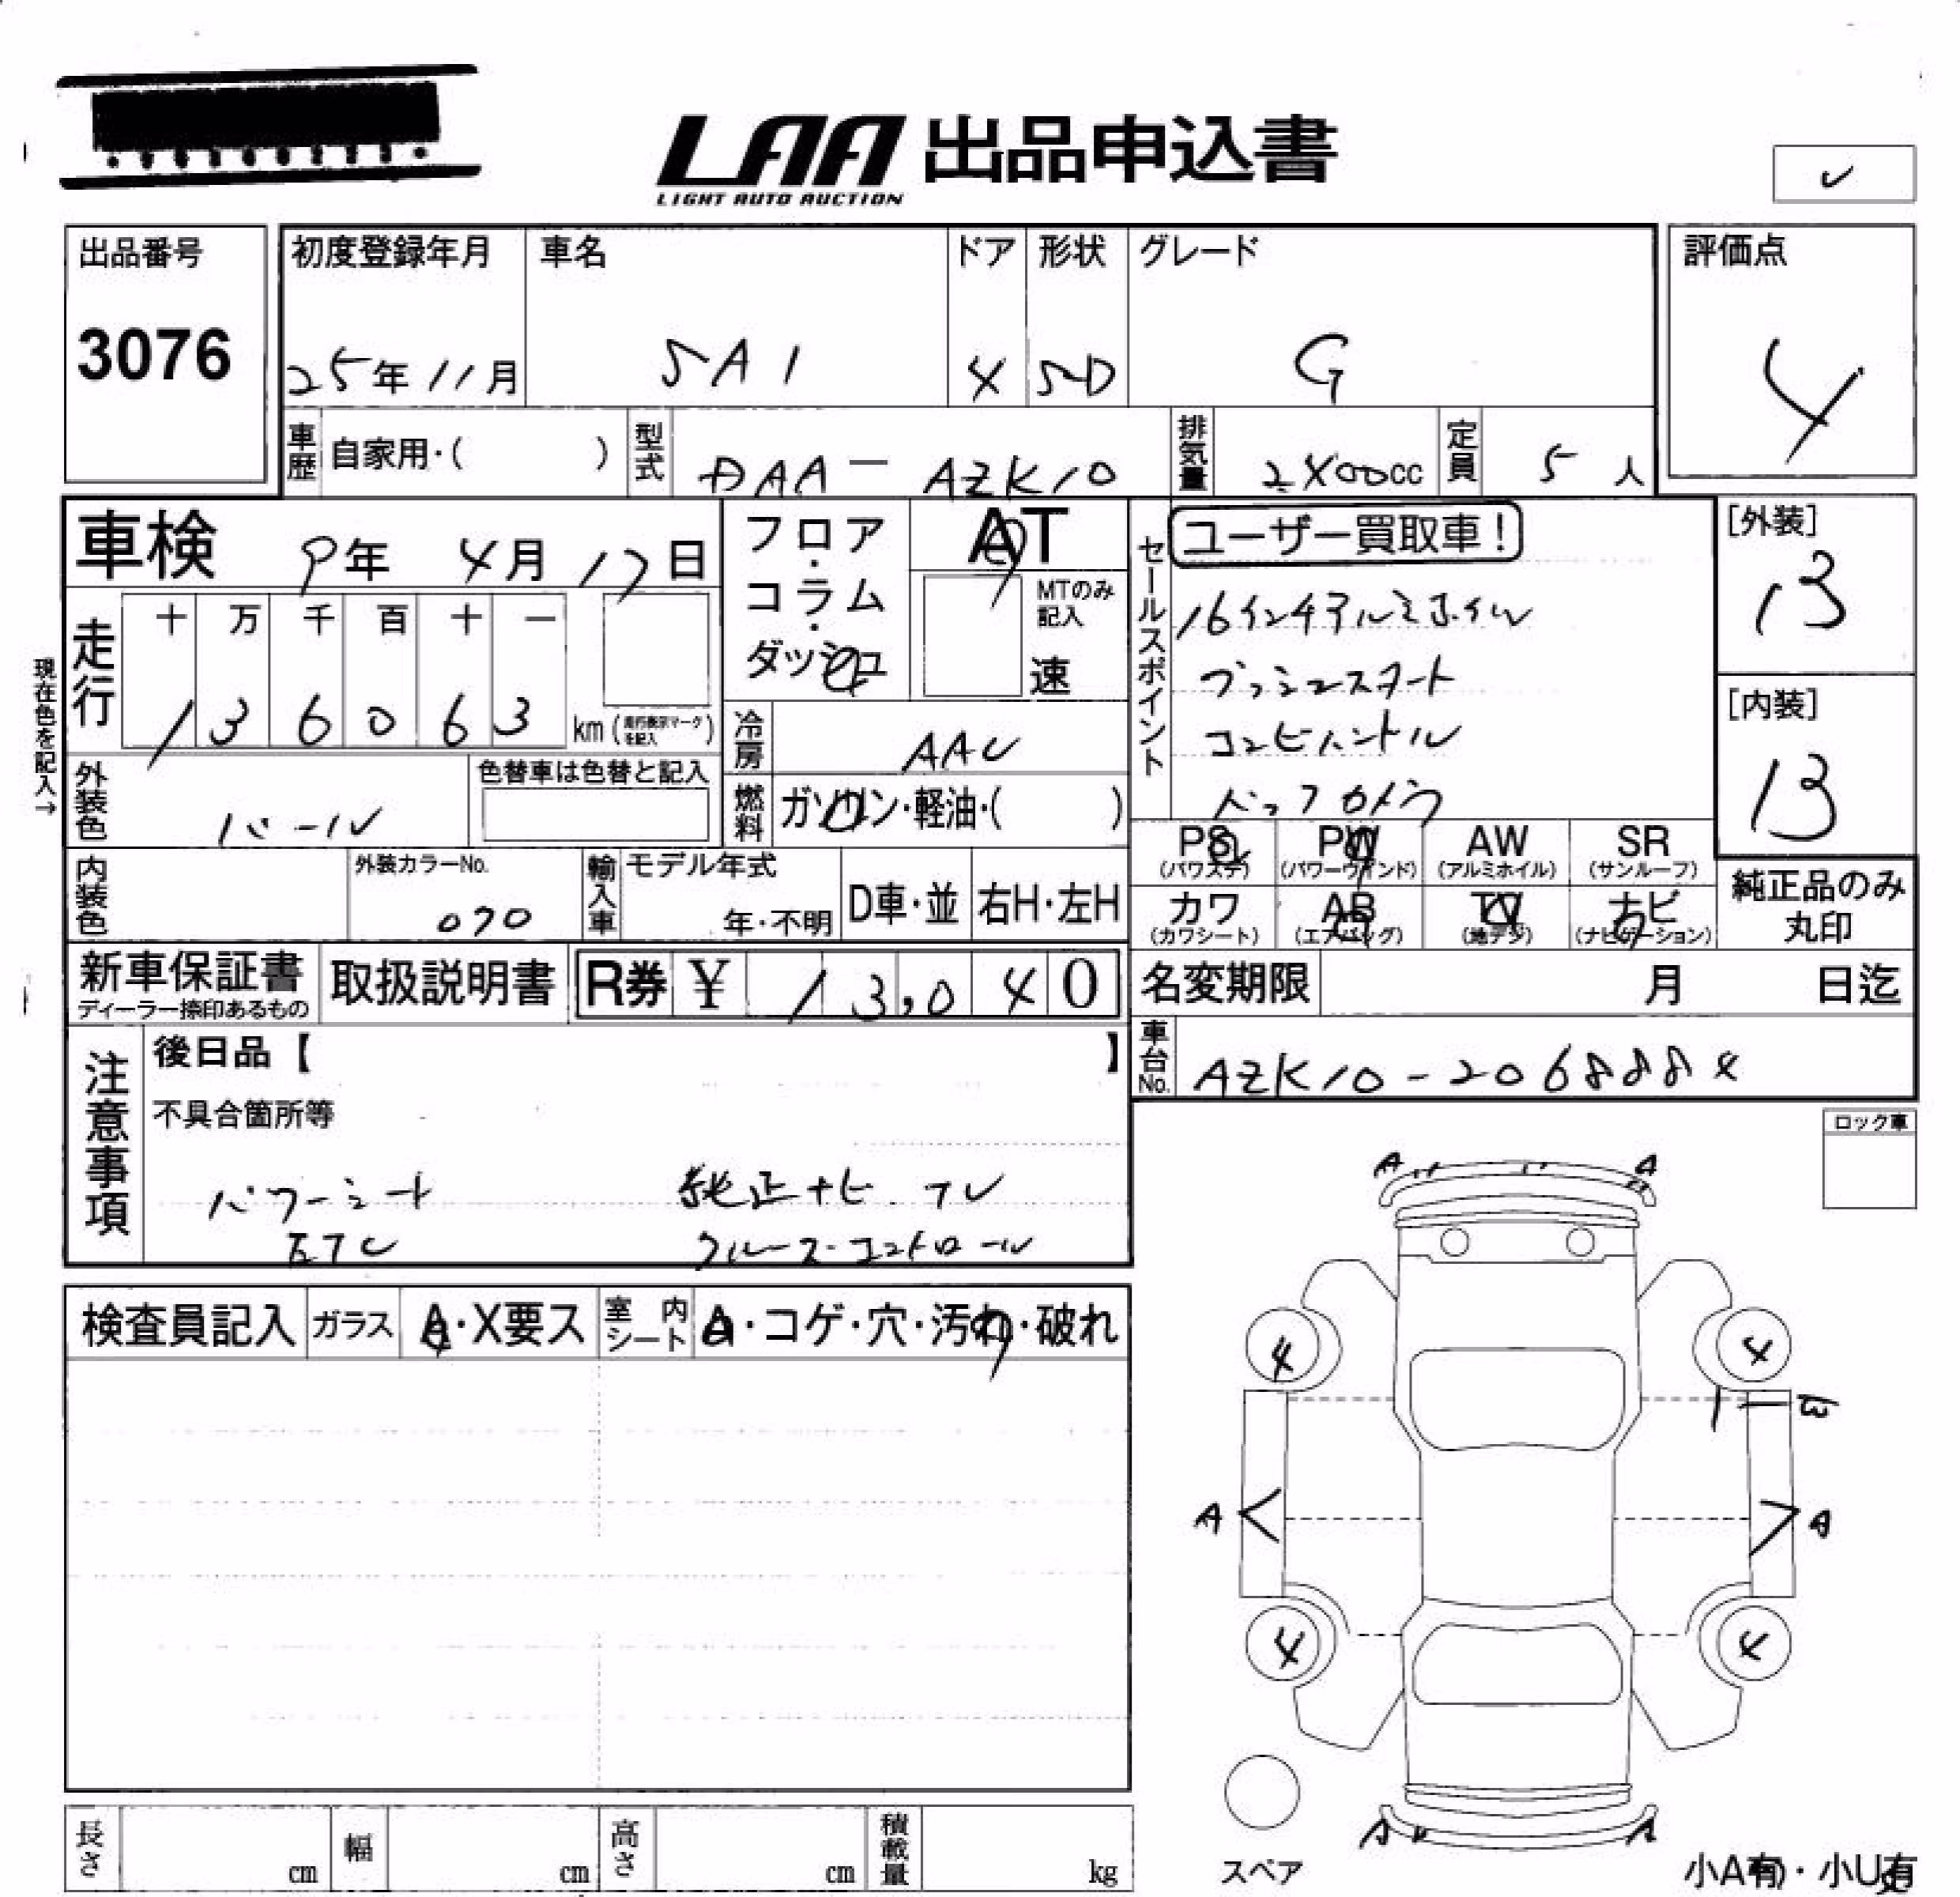 LAA 出品申込書
LIGHT AUTO AUCTION
出品番号
3076
初度登録年月 車名 ドア 形状 グレード
25年11月 SAI 4 SD G
評価点
4
車歴 自家用・( ) 型式 DAA-AZK10 排気量 2400cc 定員 5人
車検 9年 4月 17日
フロア・コラム・ダッシュ
AT
MTのみ記入
速
セールスポイント
ユーザー買取車!
16インチアルミホイル
プッシュスタート
コンビハンドル
バックカメラ
[外装]
13
[内装]
13
現在色を記入→
走行 十 万 千 百 十 一
136063 km (走行表示マークを記入)
冷房 AAC
外装色 パール
色替車は色替と記入
燃料 ガソリン・軽油・( )
PS (パワステ) PW (パワーウインド) AW (アルミホイル) SR (サンルーフ)
カワ (カワシート) AB (エアバッグ) TV (地デジ) ナビ (ナビゲーション)
純正品のみ丸印
内装色
外装カラーNo.
070
輸入車 モデル年式
年・不明
D車・並 右H・左H
新車保証書
ディーラー捺印あるもの
取扱説明書
R券 ¥ 13,040
名変期限 月 日迄
注意事項
後日品【 】
車台No. AZK10-2068884
不具合箇所等
パワーシート 純正ナビ.TV
ETC クルーズ・コントロール
ロック車
検査員記入 ガラス A・X要ス 室内シート A・コゲ・穴・汚れ・破れ
A A
4 4
W
A A
4 4
A A
スペア
長さ cm 幅 cm 高さ cm 積載量 kg
小A有・小U有